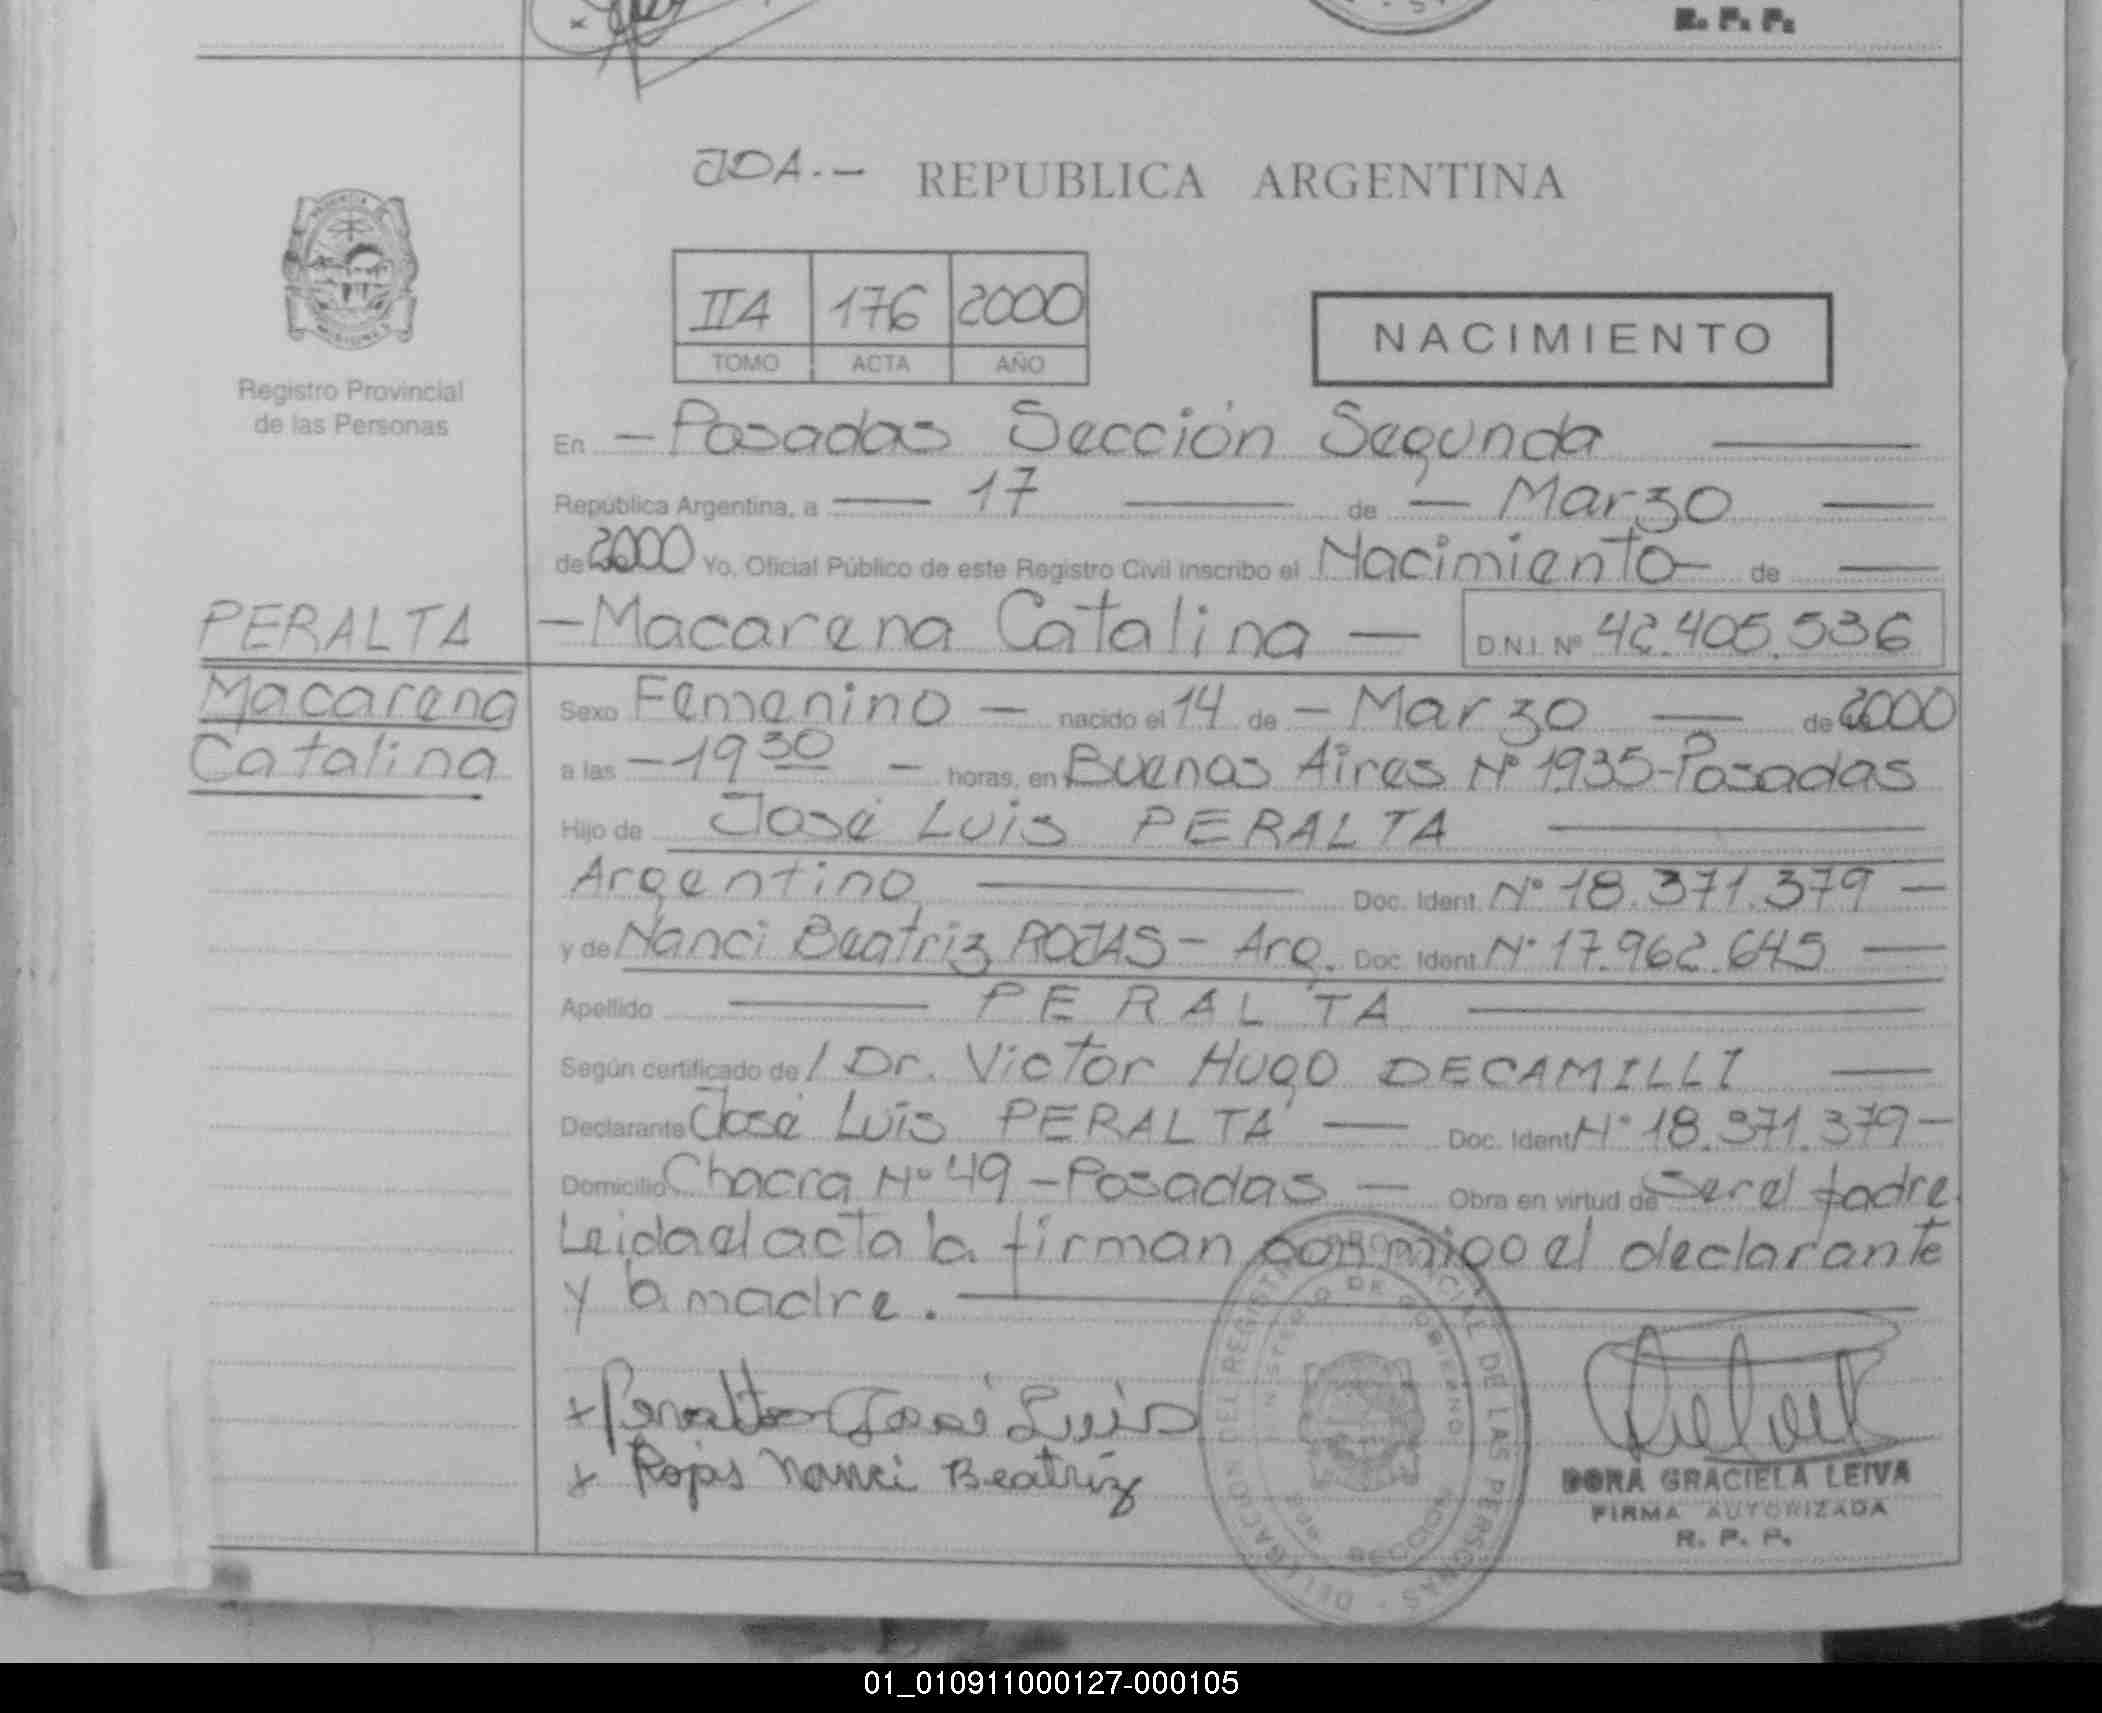 R. P. P.
JOA.- REPUBLICA ARGENTINA
IIA 176 2000
TOMO ACTA AÑO
NACIMIENTO
Registro Provincial
de las Personas
En - Posadas Sección Segunda
República Argentina, a 17 de - Marzo
de 2000 Yo, Oficial Público de este Registro Civil inscribo el Nacimiento - de
PERALTA
Macarena
Catalina
- Macarena Catalina - D.N.I. Nº 42.405.536
Sexo Femenino - nacido el 14 de - Marzo de 2000
a las - 19 30 - horas, en Buenos Aires Nº 1935-Posadas
Hijo de José Luis PERALTA
Argentino Doc. Ident. Nº 18.371.379 -
y de Nanci Beatriz ROJAS - Arg. Doc. Ident. Nº 17.962.645
Apellido PERALTA
Según certificado de / Dr. Victor Hugo DECAMILLI
Declarante José Luis PERALTA Doc. Ident. Nº 18.371.379 -
Domicilio Chacra Nº 49 - Posadas - Obra en virtud de ser el padre
Leida el acta la firman conmigo el declarante
y la madre.
+ Peralta José Luis
+ Rojas Nanci Beatriz
DELEGACION DEL REGISTRO PROVINCIAL DE LAS PERSONAS
MINISTERIO DE GOBIERNO
DORA GRACIELA LEIVA
FIRMA AUTORIZADA
R. P. P.
01_010911000127-000105